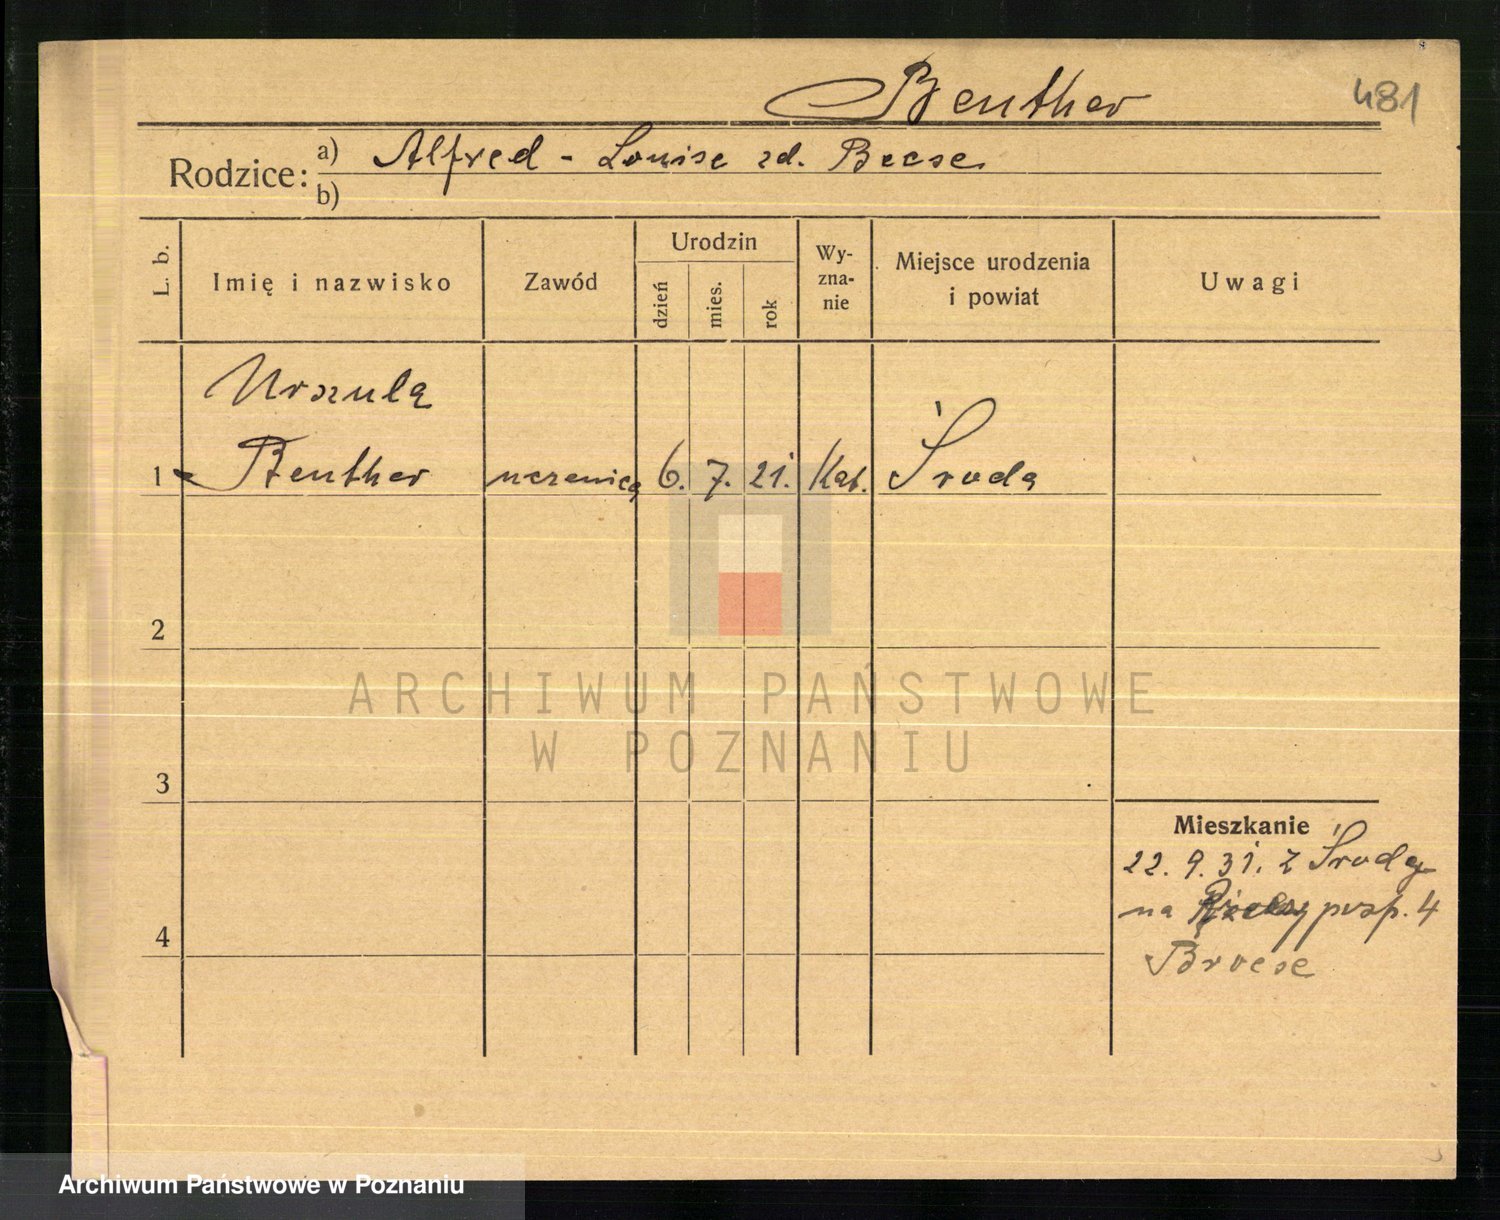 Benther
481
Rodzice: a) Alfred - Louise zd. Beese
b)
L. b. Imię i nazwisko Zawód Urodzin dzień mies. rok Wy-zna-nie Miejsce urodzenia i powiat Uwagi
Urszula
1 Benther uczenica 6. 7. 21. Kat. Środa
2
3
4
Mieszkanie
22. 9. 31. z Środy
na przp. 4
Broese
ARCHIWUM PAŃSTWOWE
W POZNANIU
Archiwum Państwowe w Poznaniu